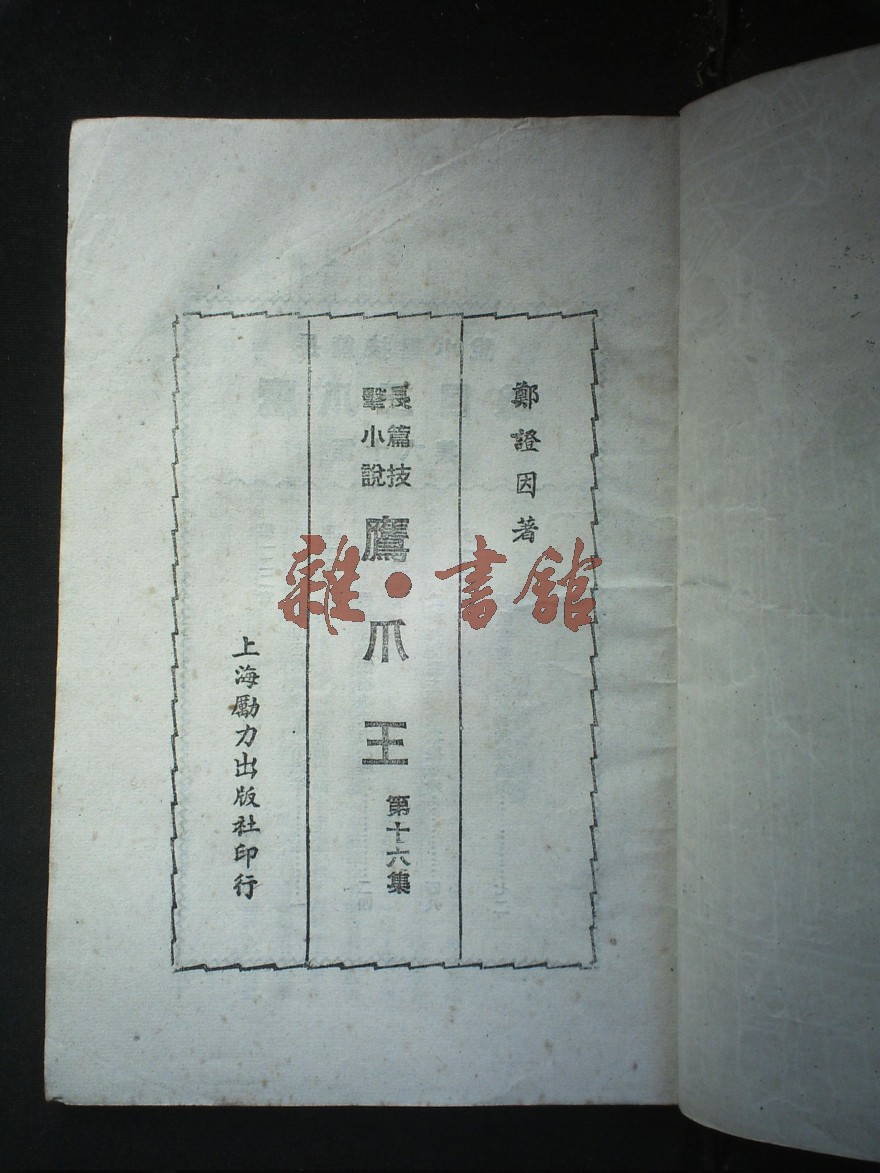 鄭證因著
長篇技
擊小說
鷹爪王
第十六集
上海勵力出版社印行
雜·書館